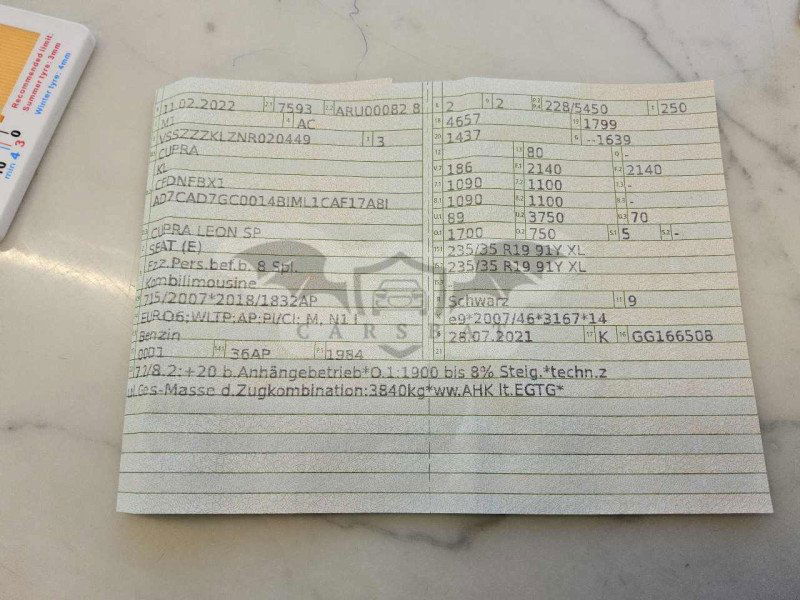 Recommended limit.
Summer tyre: 3mm
Winter tyre: 4mm
min 4 3 0
11.02.2022 2.1 7593 2.2 ARU00082 8
M1 4 AC
VSSZZZKLZNR020449 3 3
CUPRA
KL
CFDNFBX1
AD7CAD7GC0014BIML1CAF17A8I
CUPRA LEON SP
SEAT (E)
Fz.Pers.bef.b. 8 Spl.
Kombilimousine
715/2007*2018/1832AP
EURO6;WLTP;AP;PI/CI; M, N1 I
Benzin
0001 36AP 1984
2 9 2 228/5450 T 250
18 4657 19 1799
20 1437 G --1639
12 13 80 Q -
V.7 186 F.1 2140 F.2 2140
7.1 1090 7.2 1100 7.3 -
8.1 1090 8.2 1100 8.3 -
U.1 89 U.2 3750 U.3 70
O.1 1700 O.2 750 S.1 5 S.2 -
15.1 235/35 R19 91Y XL
235/35 R19 91Y XL
R Schwarz 11 9
e9*2007/46*3167*14
28.07.2021 17 K 16 GG166508
21
7.1/8.2:+20 b.Anhängebetrieb*O.1:1900 bis 8% Steig.*techn.z
ul.Ges-Masse d.Zugkombination:3840kg*ww.AHK lt.EGTG*
CARSBAT